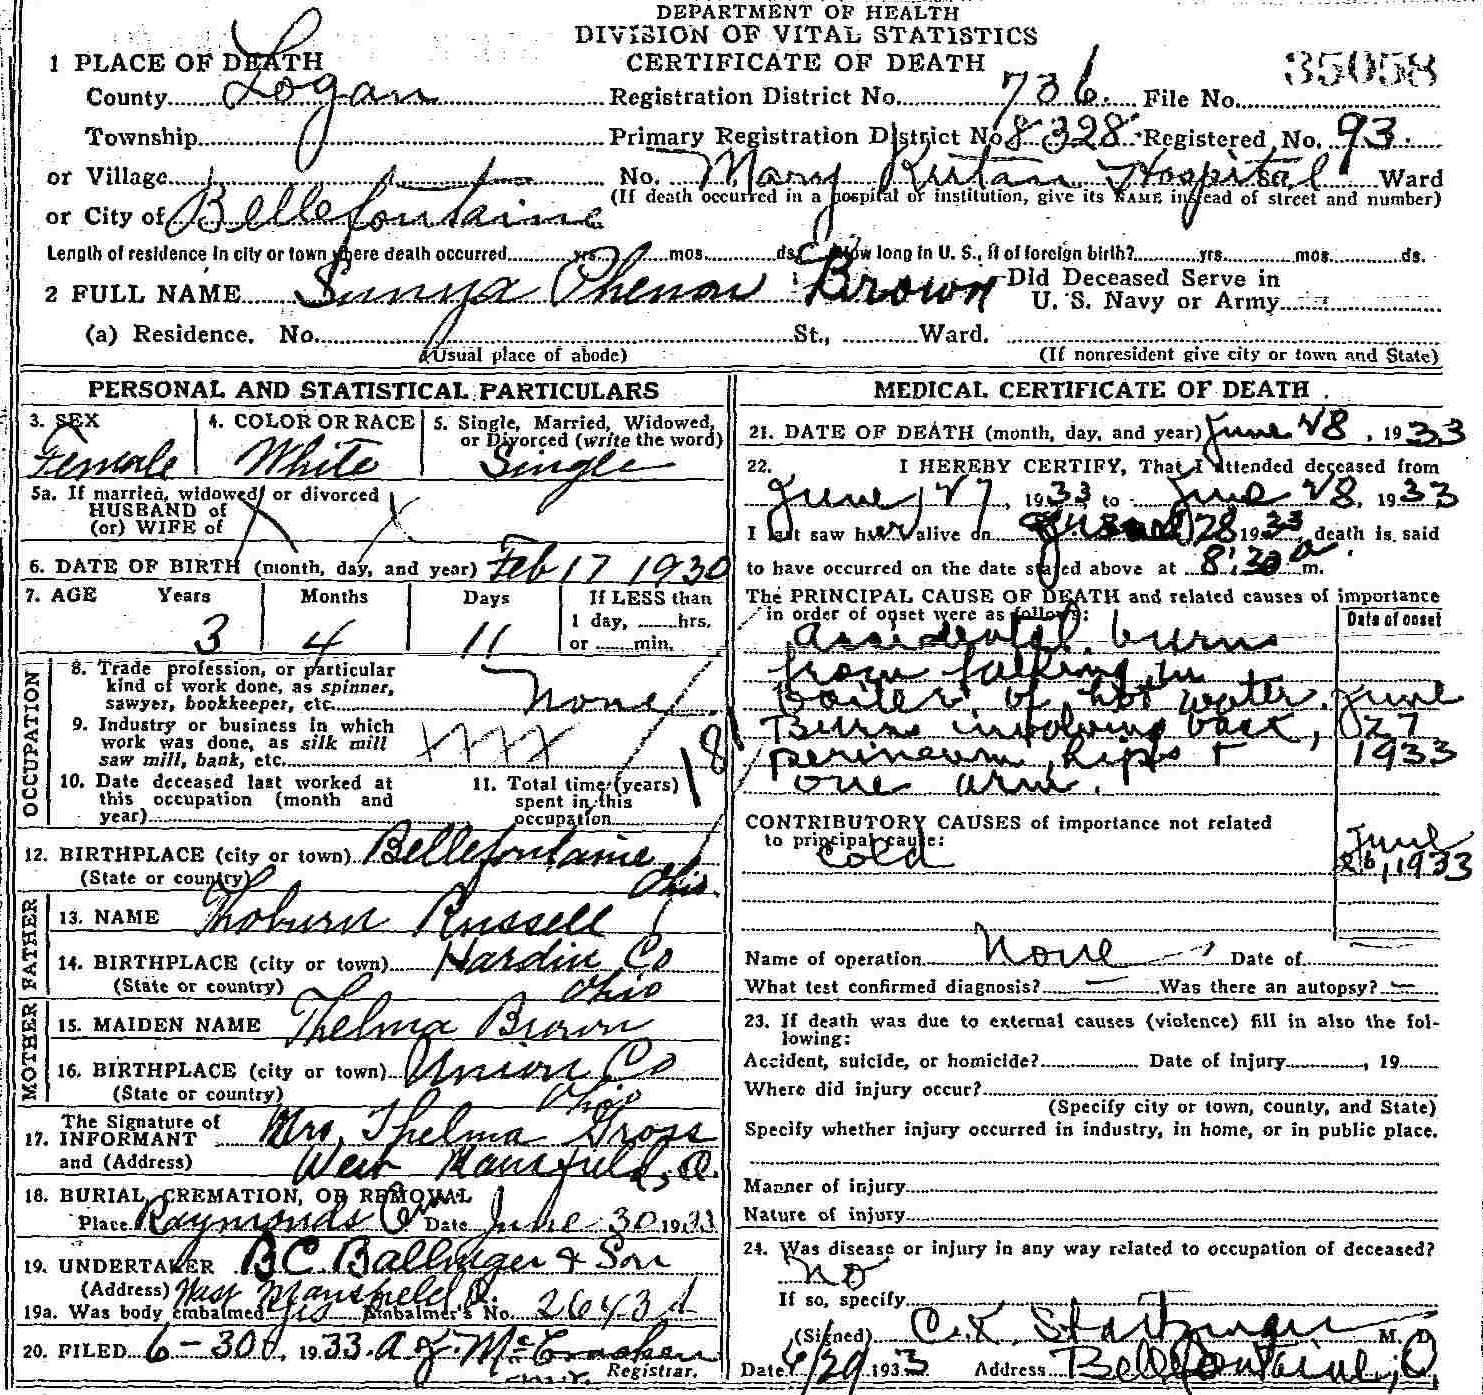 DEPARTMENT OF HEALTH
DIVISION OF VITAL STATISTICS
CERTIFICATE OF DEATH
35058
1 PLACE OF DEATH
County Logan Registration District No. 736. File No.
Township Primary Registration District No 8328 Registered No. 93.
or Village No. Mary Rutan Hospital St. Ward
(If death occurred in a hospital or institution, give its NAME instead of street and number)
or City of Bellefontaine
Length of residence in city or town where death occurred yrs. mos. ds. How long in U. S., if of foreign birth? yrs. mos. ds.
2 FULL NAME Brown Did Deceased Serve in
U. S. Navy or Army
(a) Residence. No. St., Ward.
(Usual place of abode) (If nonresident give city or town and State)
PERSONAL AND STATISTICAL PARTICULARS
3. SEX 4. COLOR OR RACE 5. Single, Married, Widowed,
or Divorced (write the word)
Female White Single
5a. If married, widowed, or divorced
HUSBAND of
(or) WIFE of
6. DATE OF BIRTH (month, day, and year) Feb 17 1930
7. AGE Years Months Days If LESS than
1 day, hrs.
3 4 11 or min.
OCCUPATION
8. Trade, profession, or particular
kind of work done, as spinner,
sawyer, bookkeeper, etc. None
9. Industry or business in which
work was done, as silk mill
saw mill, bank, etc. XXXX
10. Date deceased last worked at
this occupation (month and
year)
11. Total time (years)
spent in this
occupation
12. BIRTHPLACE (city or town) Bellefontaine
(State or country) Ohio.
FATHER
13. NAME Thoburn Russell
14. BIRTHPLACE (city or town) Hardin Co
(State or country) Ohio
MOTHER
15. MAIDEN NAME Thelma Brown
16. BIRTHPLACE (city or town) Union Co
(State or country) Ohio
The Signature of
17. INFORMANT Mrs. Thelma Gross
and (Address) West Mansfield, O.
18. BURIAL, CREMATION, OR REMOVAL
Place Raymonds Cem Date June 30 1933
19. UNDERTAKER B C Ballinger & Son
(Address) West Mansfield O.
19a. Was body embalmed yes Embalmer's No. 2643
20. FILED 6-30, 1933. McCracken
Registrar.
MEDICAL CERTIFICATE OF DEATH
21. DATE OF DEATH (month, day, and year) June 28, 1933
22. I HEREBY CERTIFY, That I attended deceased from
June 27, 1933 to June 28, 1933
I last saw her alive on June 28 1933, death is said
to have occurred on the date stated above at 8:30 a m.
The PRINCIPAL CAUSE OF DEATH and related causes of importance
in order of onset were as follows: Date of onset
accidental burns
from falling in
boiler of hot water. June
Burns involving back, 27
perineum, hips + 1933
one arm.
CONTRIBUTORY CAUSES of importance not related
to principal cause: June
Cold 26, 1933
Name of operation None Date of
What test confirmed diagnosis? — Was there an autopsy? —
23. If death was due to external causes (violence) fill in also the fol-
lowing:
Accident, suicide, or homicide? Date of injury , 19
Where did injury occur?
(Specify city or town, county, and State)
Specify whether injury occurred in industry, in home, or in public place.
Manner of injury
Nature of injury
24. Was disease or injury in any way related to occupation of deceased?
No
If so, specify
(Signed) C. K. M. D.
Date 6/29 1933 Address Bellefontaine, O